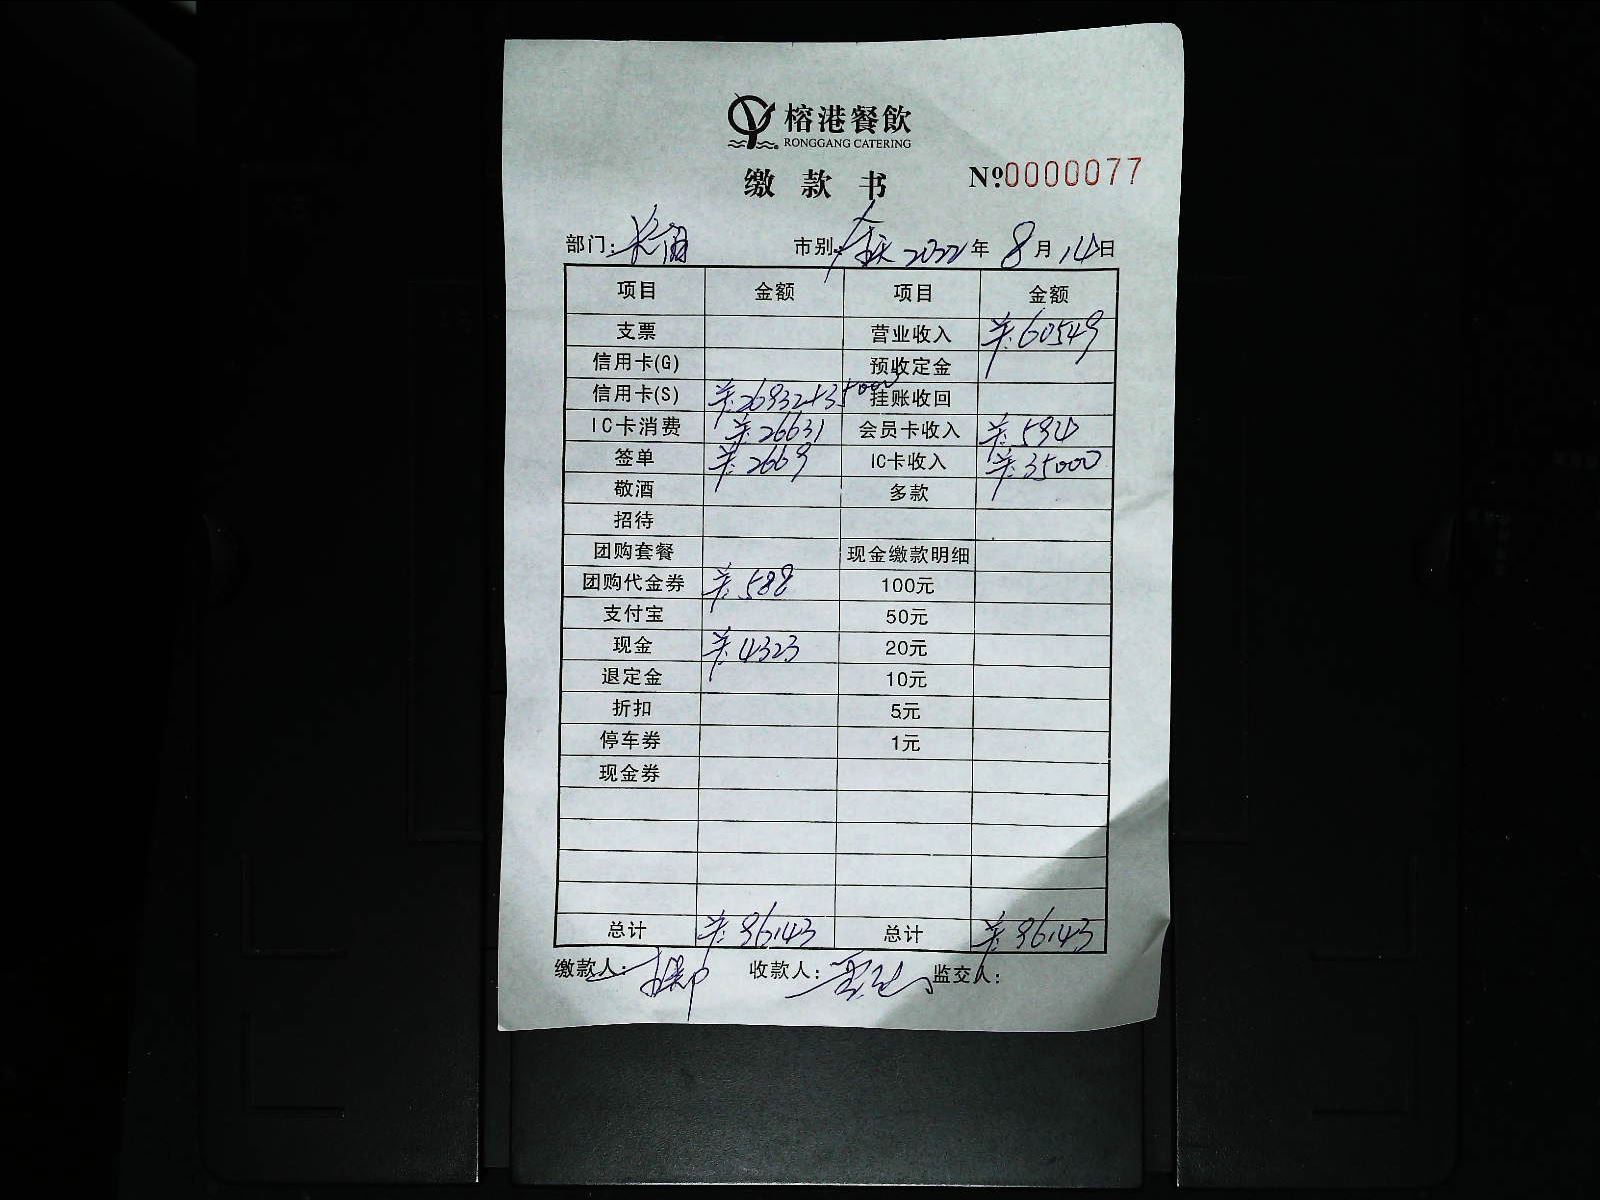 榕港餐飲
RONGGANG CATERING
缴款书 Nº0000077
部门: 市别:全天 2022年8月14日
项目 金额 项目 金额
支票 营业收入 ¥60549
信用卡(G) 预收定金
信用卡(S) ¥26932+35000 挂账收回
IC卡消费 ¥26631 会员卡收入 ¥594
签单 ¥2669 IC卡收入 ¥35000
敬酒 多款
招待
团购套餐 现金缴款明细
团购代金券 ¥588 100元
支付宝 50元
现金 ¥4323 20元
退定金 10元
折扣 5元
停车券 1元
现金券
总计 ¥96143 总计 ¥96143
缴款人: 收款人: 监交人: